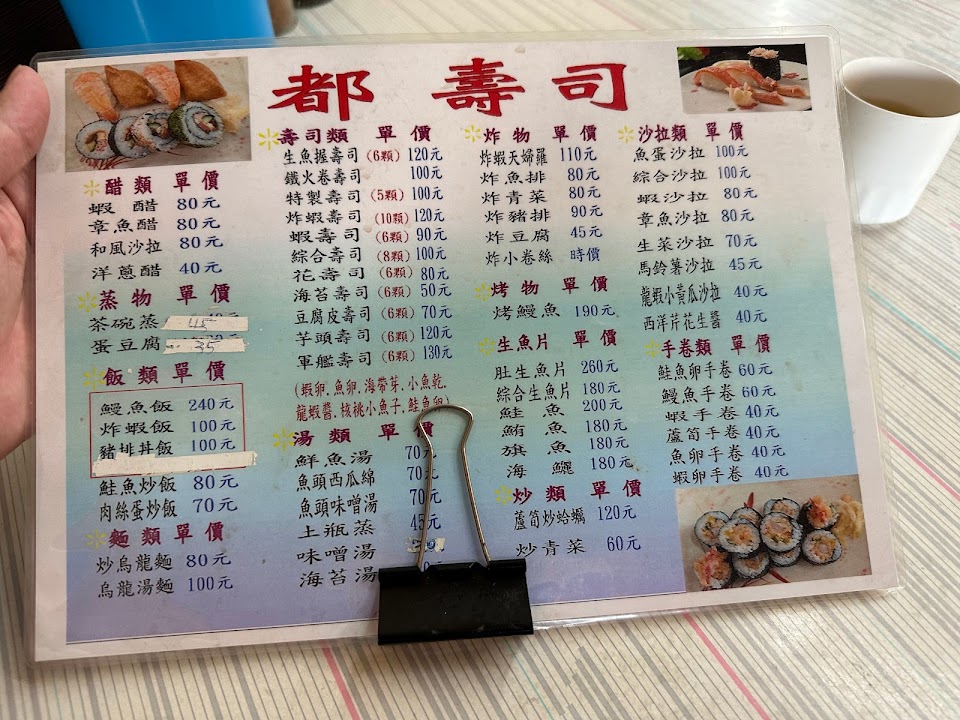 都壽司
醋類 單價
蝦醋 80元
章魚醋 80元
和風沙拉 80元
洋蔥醋 40元
蒸物 單價
茶碗蒸 45
蛋豆腐 35
飯類 單價
鰻魚飯 240元
炸蝦飯 100元
豬排丼飯 100元
鮭魚炒飯 80元
肉絲蛋炒飯 70元
麵類 單價
炒烏龍麵 80元
烏龍湯麵 100元
壽司類 單價
生魚握壽司 (6顆) 120元
鐵火卷壽司 100元
特製壽司 (5顆) 100元
炸蝦壽司 (10顆) 120元
蝦壽司 (6顆) 90元
綜合壽司 (8顆) 100元
花壽司 (6顆) 80元
海苔壽司 (6顆) 50元
豆腐皮壽司 (6顆) 70元
芋頭壽司 (6顆) 120元
軍艦壽司 (6顆) 130元
(蝦卵.魚卵.海帶芽.小魚乾.
龍蝦醬.核桃小魚子.鮭魚卵)
湯類 單價
鮮魚湯 70元
魚頭西瓜綿 70元
魚頭味噌湯 70元
土瓶蒸 45元
味噌湯
海苔湯
炸物 單價
炸蝦天婦羅 110元
炸魚排 80元
炸青菜 80元
炸豬排 90元
炸豆腐 45元
炸小卷絲 時價
烤物 單價
烤鰻魚 190元
生魚片 單價
肚生魚片 260元
綜合生魚片 180元
鮭魚 200元
鮪魚 180元
旗魚 180元
海鱺 180元
炒類 單價
蘆筍炒蛤蠣 120元
炒青菜 60元
沙拉類 單價
魚蛋沙拉 100元
綜合沙拉 100元
蝦沙拉 80元
章魚沙拉 80元
生菜沙拉 70元
馬鈴薯沙拉 45元
龍蝦小黃瓜沙拉 40元
西洋芹花生醬 40元
手卷類 單價
鮭魚卵手卷 60元
鰻魚手卷 60元
蝦手卷 40元
蘆筍手卷 40元
魚卵手卷 40元
蝦卵手卷 40元